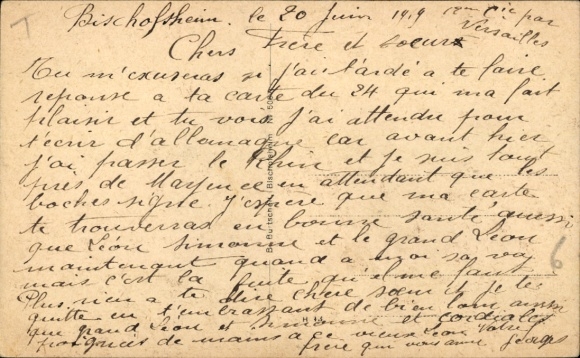 Bischofsheim. le 20 Juin 1919 par
Versailles
Chers Frère et soeur
Tu m'excuseras si j'ai tardé a te faire
reponse a ta carte du 24 qui ma fait
plaisir et tu vois j'ai attendu pour
t'écrir d'allemagne car avant hier
j'ai passer le Rhin et je suis tout
près de Mayence en attendant que les
boches signe j'espere que ma carte
te trouveras en bonne santé aussi
que Léon Simonne et le grand Léon
maintenant quand a moi sa va
mais c'est la fuite qu'il me faut
Plus rien a te dire chere soeur je te
quitte en t'embrassant de bien loin ainsi
que grand Léon et Simonne et cordiales
poignées de mains a ce vieux Léon Votre
frere qui vous aime Georges
6